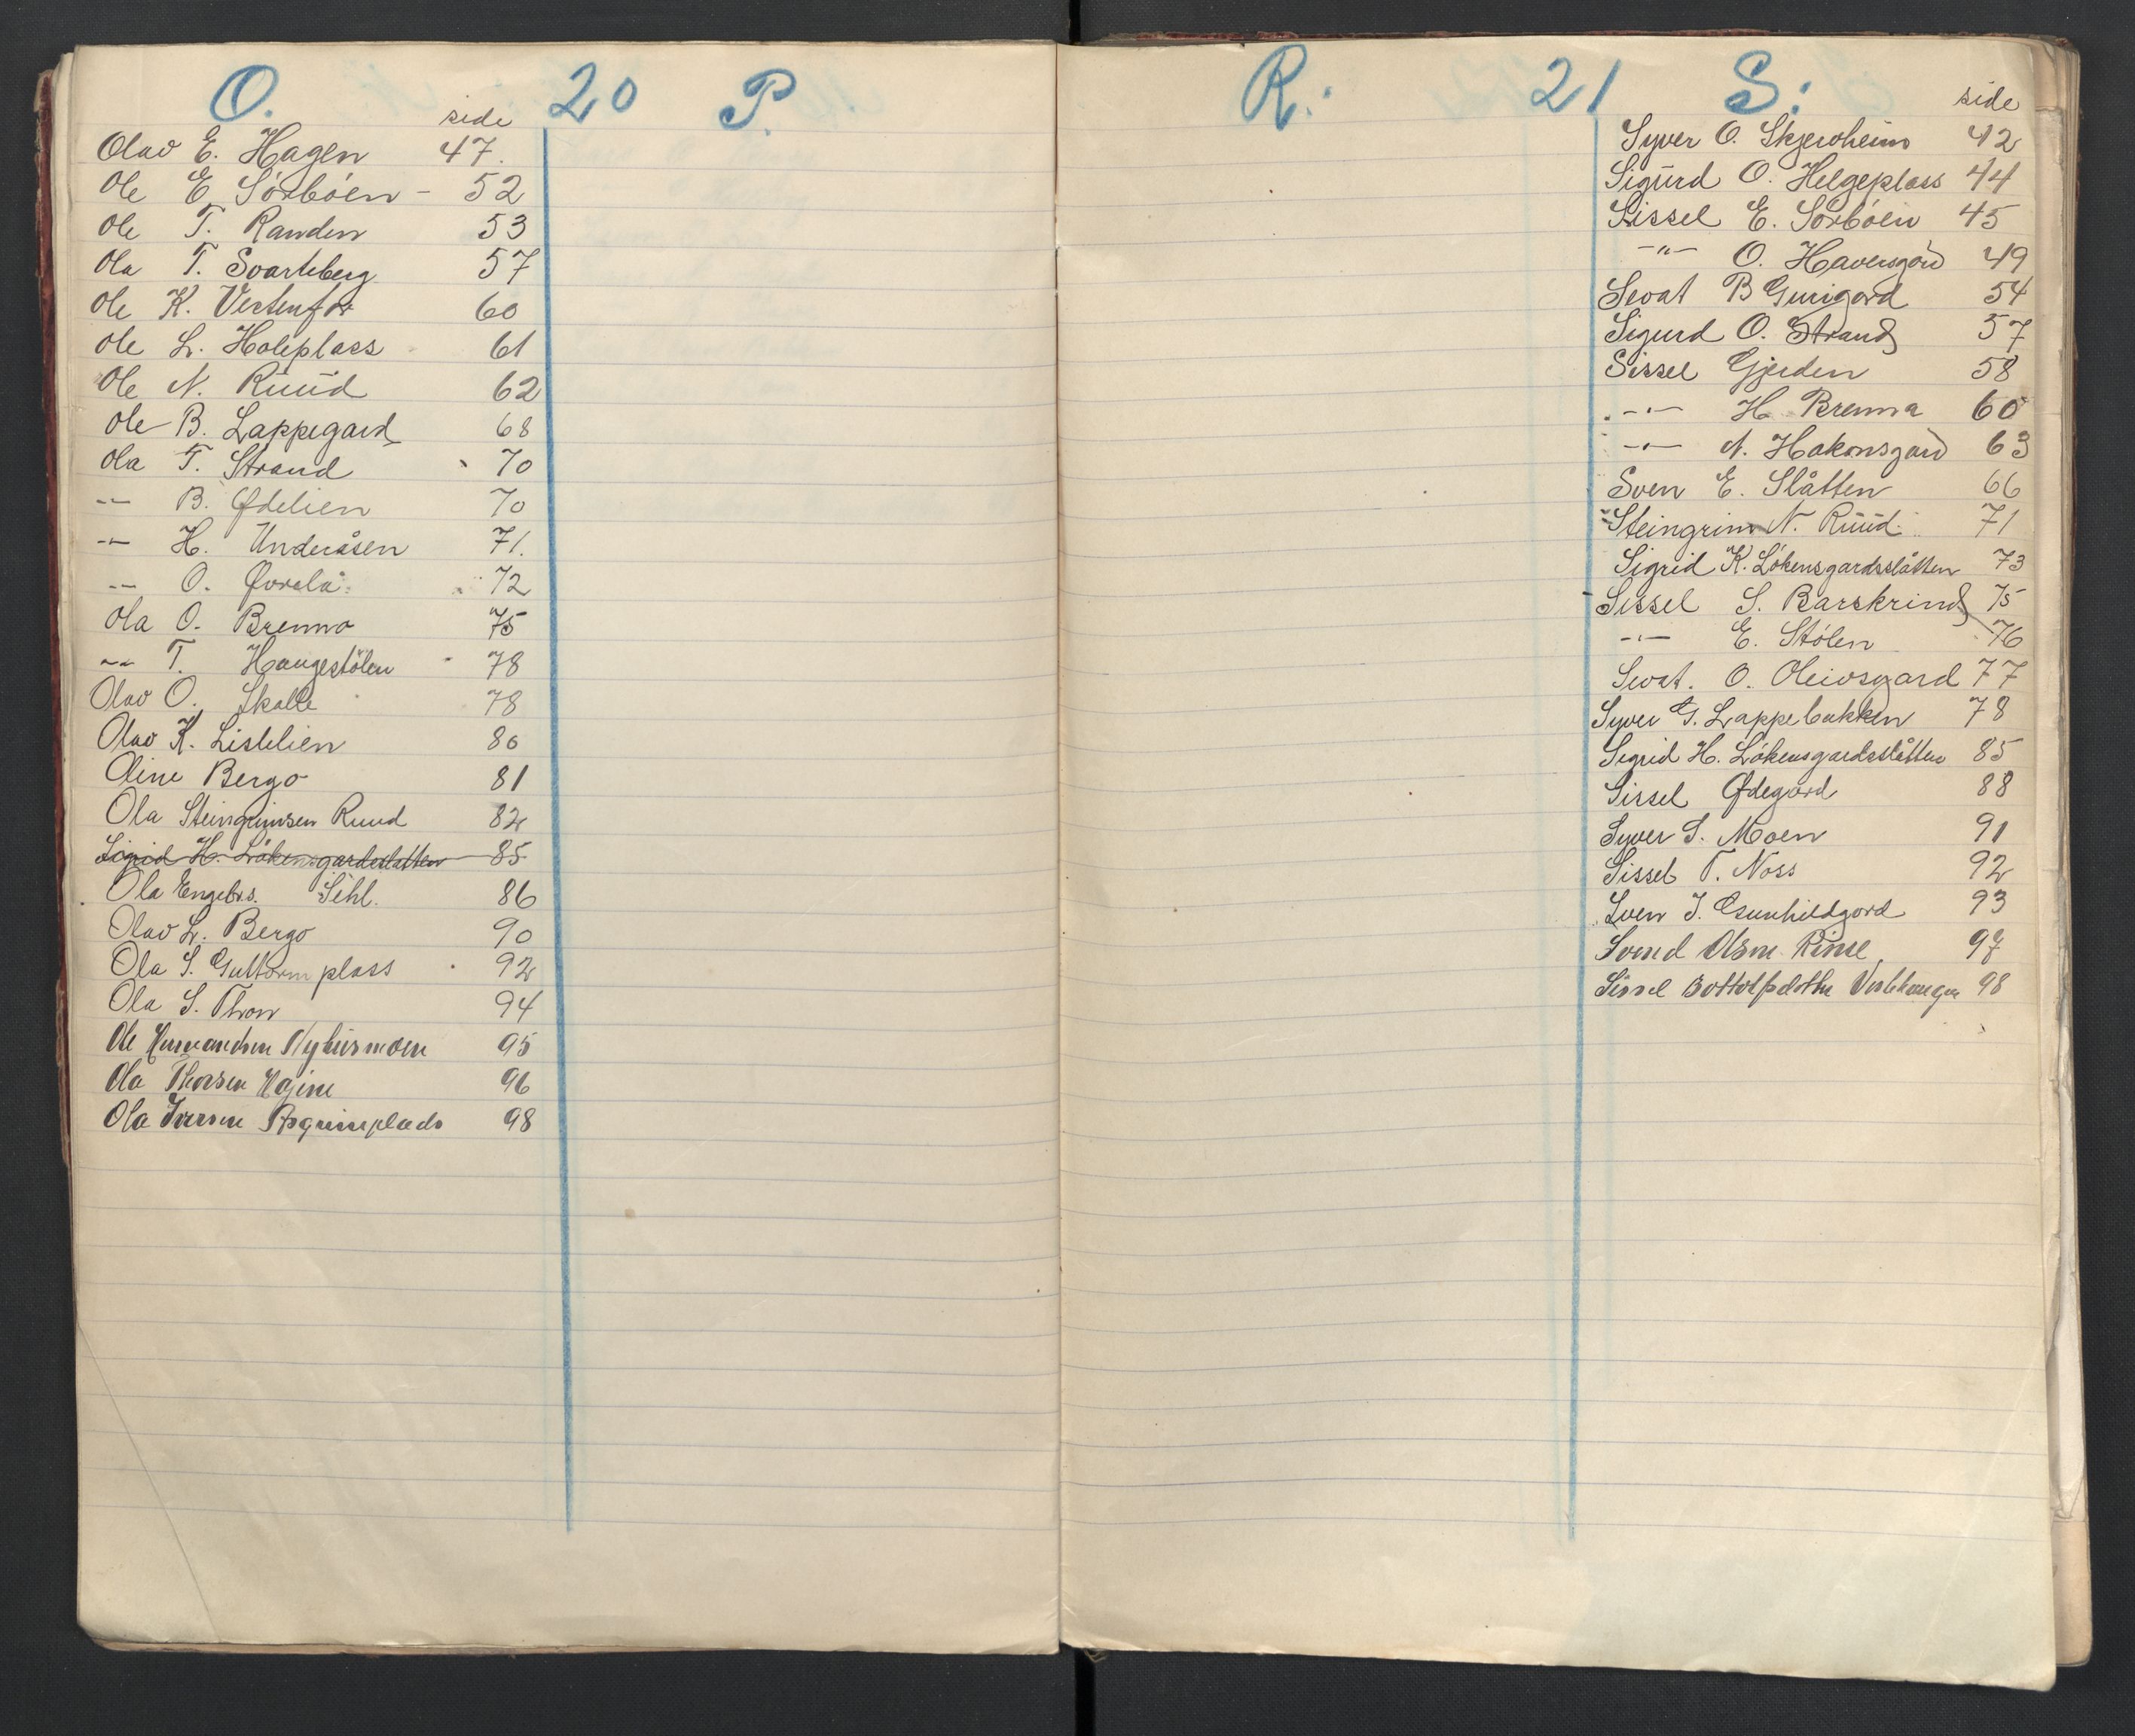 O. 20 P.
side
Olav E. Hagen 47.
Ole E Sörböen - 52
Ole T. Randen 53
Ola T. Svarteberg 57
Ole K. Vestenfor 60
Ole L. Holeplass 61
Ole N. Ruud 62
Ole B. Lappegard 68
Ola T. Strand 70
-"- B. Ødelien 70
-"- H. Underåsen 71.
-"- O. Øvrelä 72
Ola O. Brenno 75
-"- T. Haugestölen 78
Olav O. Skalle 78
Olav K. Listelien 80
Oline Bergo 81
Ola Steingrimsen Ruud 82
Sigrid H. Lökensgardsslatten 85
Ola Engebrs. Sehl. 86
Olav L. Bergo 90
Ola S. Guttormplass 92
Ola S. Thon 94
Ole Nyhusmoen 95
Ola Thorsen 96
Ola Iversen 98
R. 21 S:
side
Syver O. Skjervheim 42
Sigurd O. Helgeplass 44
Sissel E. Sörböen 45
-"- O. Haversgård 49
Sevat B Gurigard 54
Sigurd O. Strand 57
Sissel Gjerden 58
-"- H. Brenna 60
-"- N. Hakonsgard 63
Sven E. Slåtten 66
Steingrim N. Ruud. 71
Sigrid K. Lökensgardsslåtten 73
Sissel S. Barskrind 75
-"- E. Stölen 76
Sevat. O. Oleivsgard 77
Syver G. Lappebakken 78
Sigrid H. Lökensgardsslåtten 85
Sissel Ødegård 88
Syver S. Moen 91
Sissel T. Noss 92
Sven J. Gunhildgord 93
Svend Olsen 97
Sissel 98